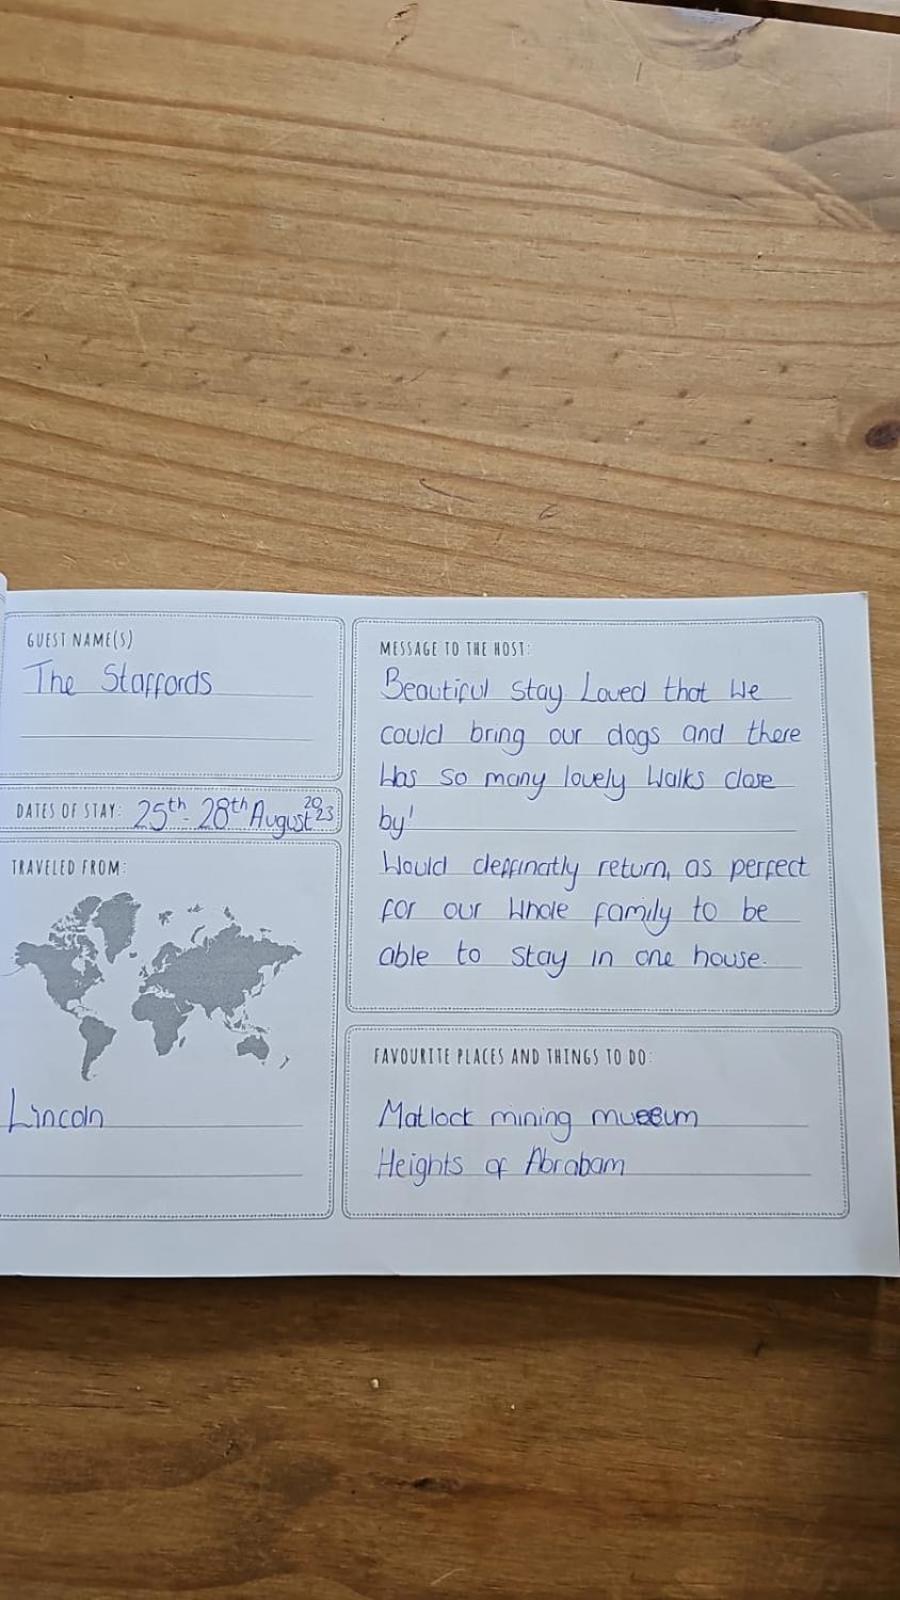 GUEST NAME(S)
The Staffords
DATES OF STAY: 25th - 28th August 2023
TRAVELED FROM:
Lincoln
MESSAGE TO THE HOST:
Beautiful stay Loved that we
could bring our dogs and there
was so many lovely walks close
by!
Would deffinatly return, as perfect
for our whole family to be
able to stay in one house.
FAVOURITE PLACES AND THINGS TO DO:
Matlock mining museum
Heights of Abraham